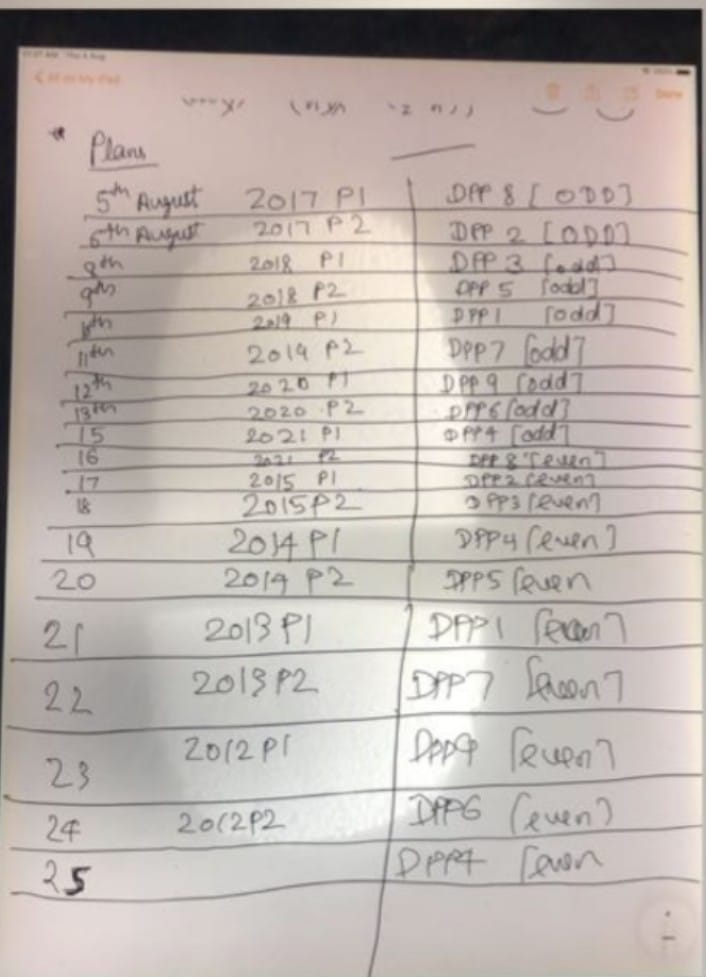 Plans
5th August 2017 P1 DPP 8 [ODD]
6th August 2017 P2 DPP 2 [ODD]
8th 2018 P1 DPP 3 [odd]
9th 2018 P2 DPP 5 [odd]
10th 2019 P1 DPP 1 [odd]
11th 2019 P2 DPP 7 [odd]
12th 2020 P1 DPP 9 [odd]
13th 2020 P2 DPP 6 [odd]
15 2021 P1 DPP 4 [odd]
16 2021 P2 DPP 8 [even]
17 2015 P1 DPP 2 [even]
18 2015 P2 DPP 3 [even]
19 2014 P1 DPP 4 [even]
20 2014 P2 DPP 5 [even
21 2013 P1 DPP 1 [even]
22 2013 P2 DPP 7 [even]
23 2012 P1 DPP 9 [even]
24 2012 P2 DPP 6 [even]
25 DPP 4 [even